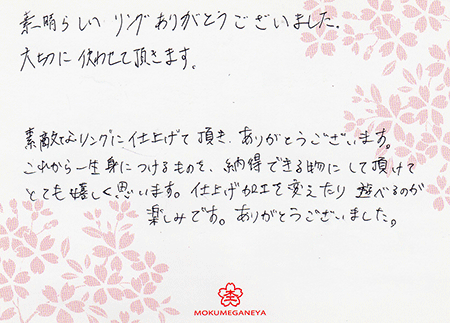 素晴らしい リングありがとうございました.
大切に 使わせて頂きます。
素敵なリングに仕上げて頂き、ありがとうございます。
これから一生身につけるものを、納得できる物にして頂けて
とても嬉しく思います。仕上げ加工を変えたり 遊べるのが
楽しみです。ありがとうございました。
MOKUMEGANEYA